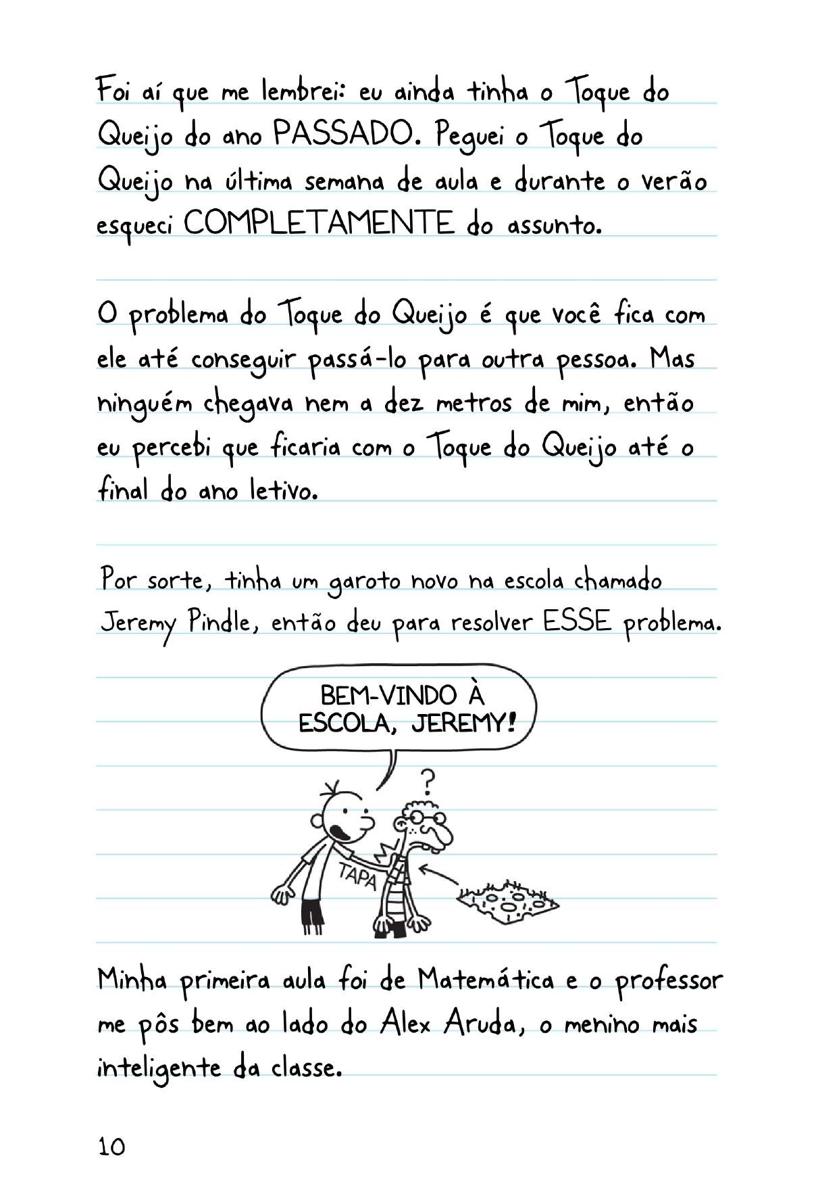 Foi aí que me lembrei: eu ainda tinha o Toque do
Queijo do ano PASSADO. Peguei o Toque do
Queijo na última semana de aula e durante o verão
esqueci COMPLETAMENTE do assunto.
O problema do Toque do Queijo é que você fica com
ele até conseguir passá-lo para outra pessoa. Mas
ninguém chegava nem a dez metros de mim, então
eu percebi que ficaria com o Toque do Queijo até o
final do ano letivo.
Por sorte, tinha um garoto novo na escola chamado
Jeremy Pindle, então deu para resolver ESSE problema.
BEM-VINDO À
ESCOLA, JEREMY!
?
TAPA
Minha primeira aula foi de Matemática e o professor
me pôs bem ao lado do Alex Aruda, o menino mais
inteligente da classe.
10